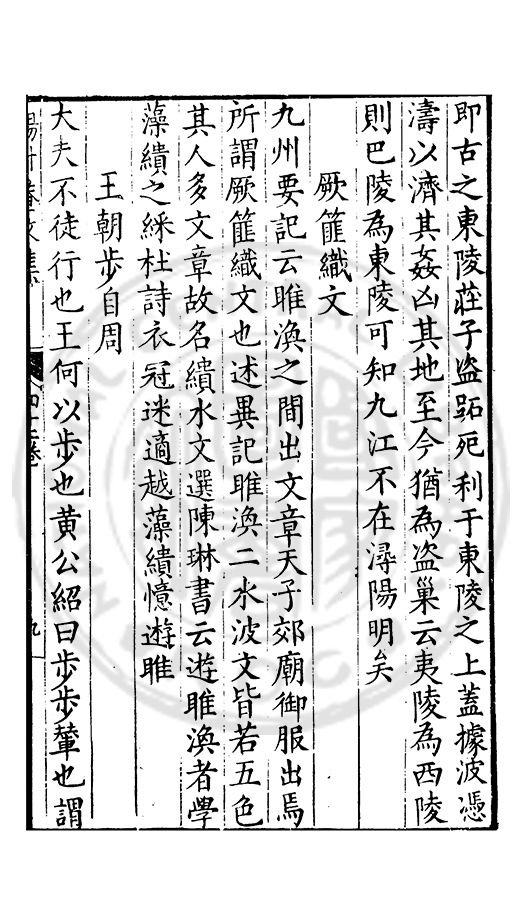 即古之東陵莊子盜跖死利于東陵之上蓋據波憑
濤以濟其姦凶其地至今猶為盜巢云夷陵為西陵
則巴陵為東陵可知九江不在潯陽明矣
厥篚織文
九州要記云睢渙之間出文章天子郊廟御服出焉
所謂厥篚織文也述異記睢渙二水波文皆若五色
其人多文章故名繢水文選陳琳書云遊睢渙者學
藻繢之綵杜詩衣冠迷適越藻繢憶遊睢
王朝步自周
大夫不徒行也王何以步也黃公紹曰步步輦也謂